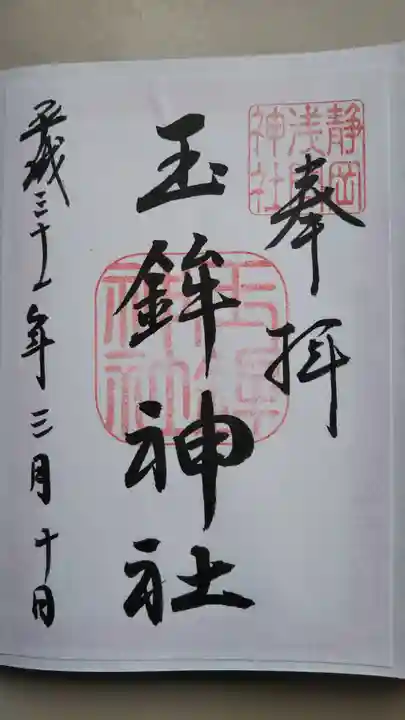 奉拝
静岡
浅間
神社
玉鉾神社
玉鉾
神社
平成三十一年三月十日